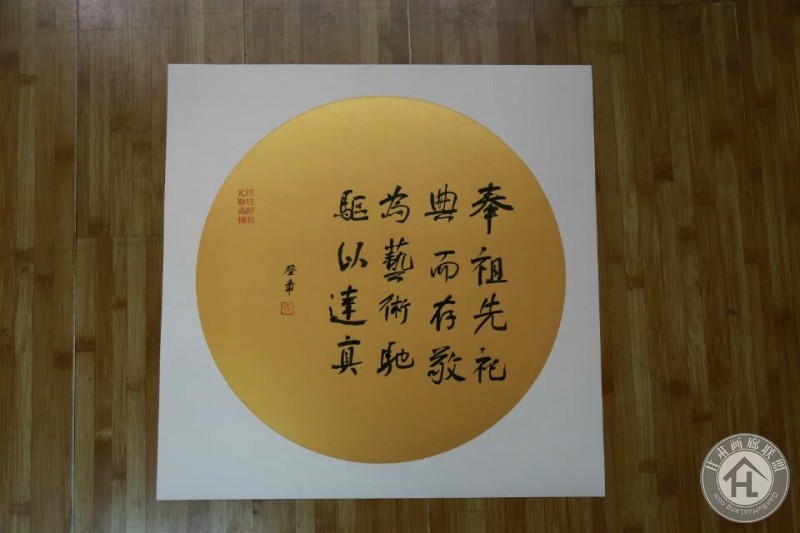 奉祖先祀
典而存敬
為藝術馳
驅以達真
登章
甘肃画廊联盟
GanSuHuaLang.com